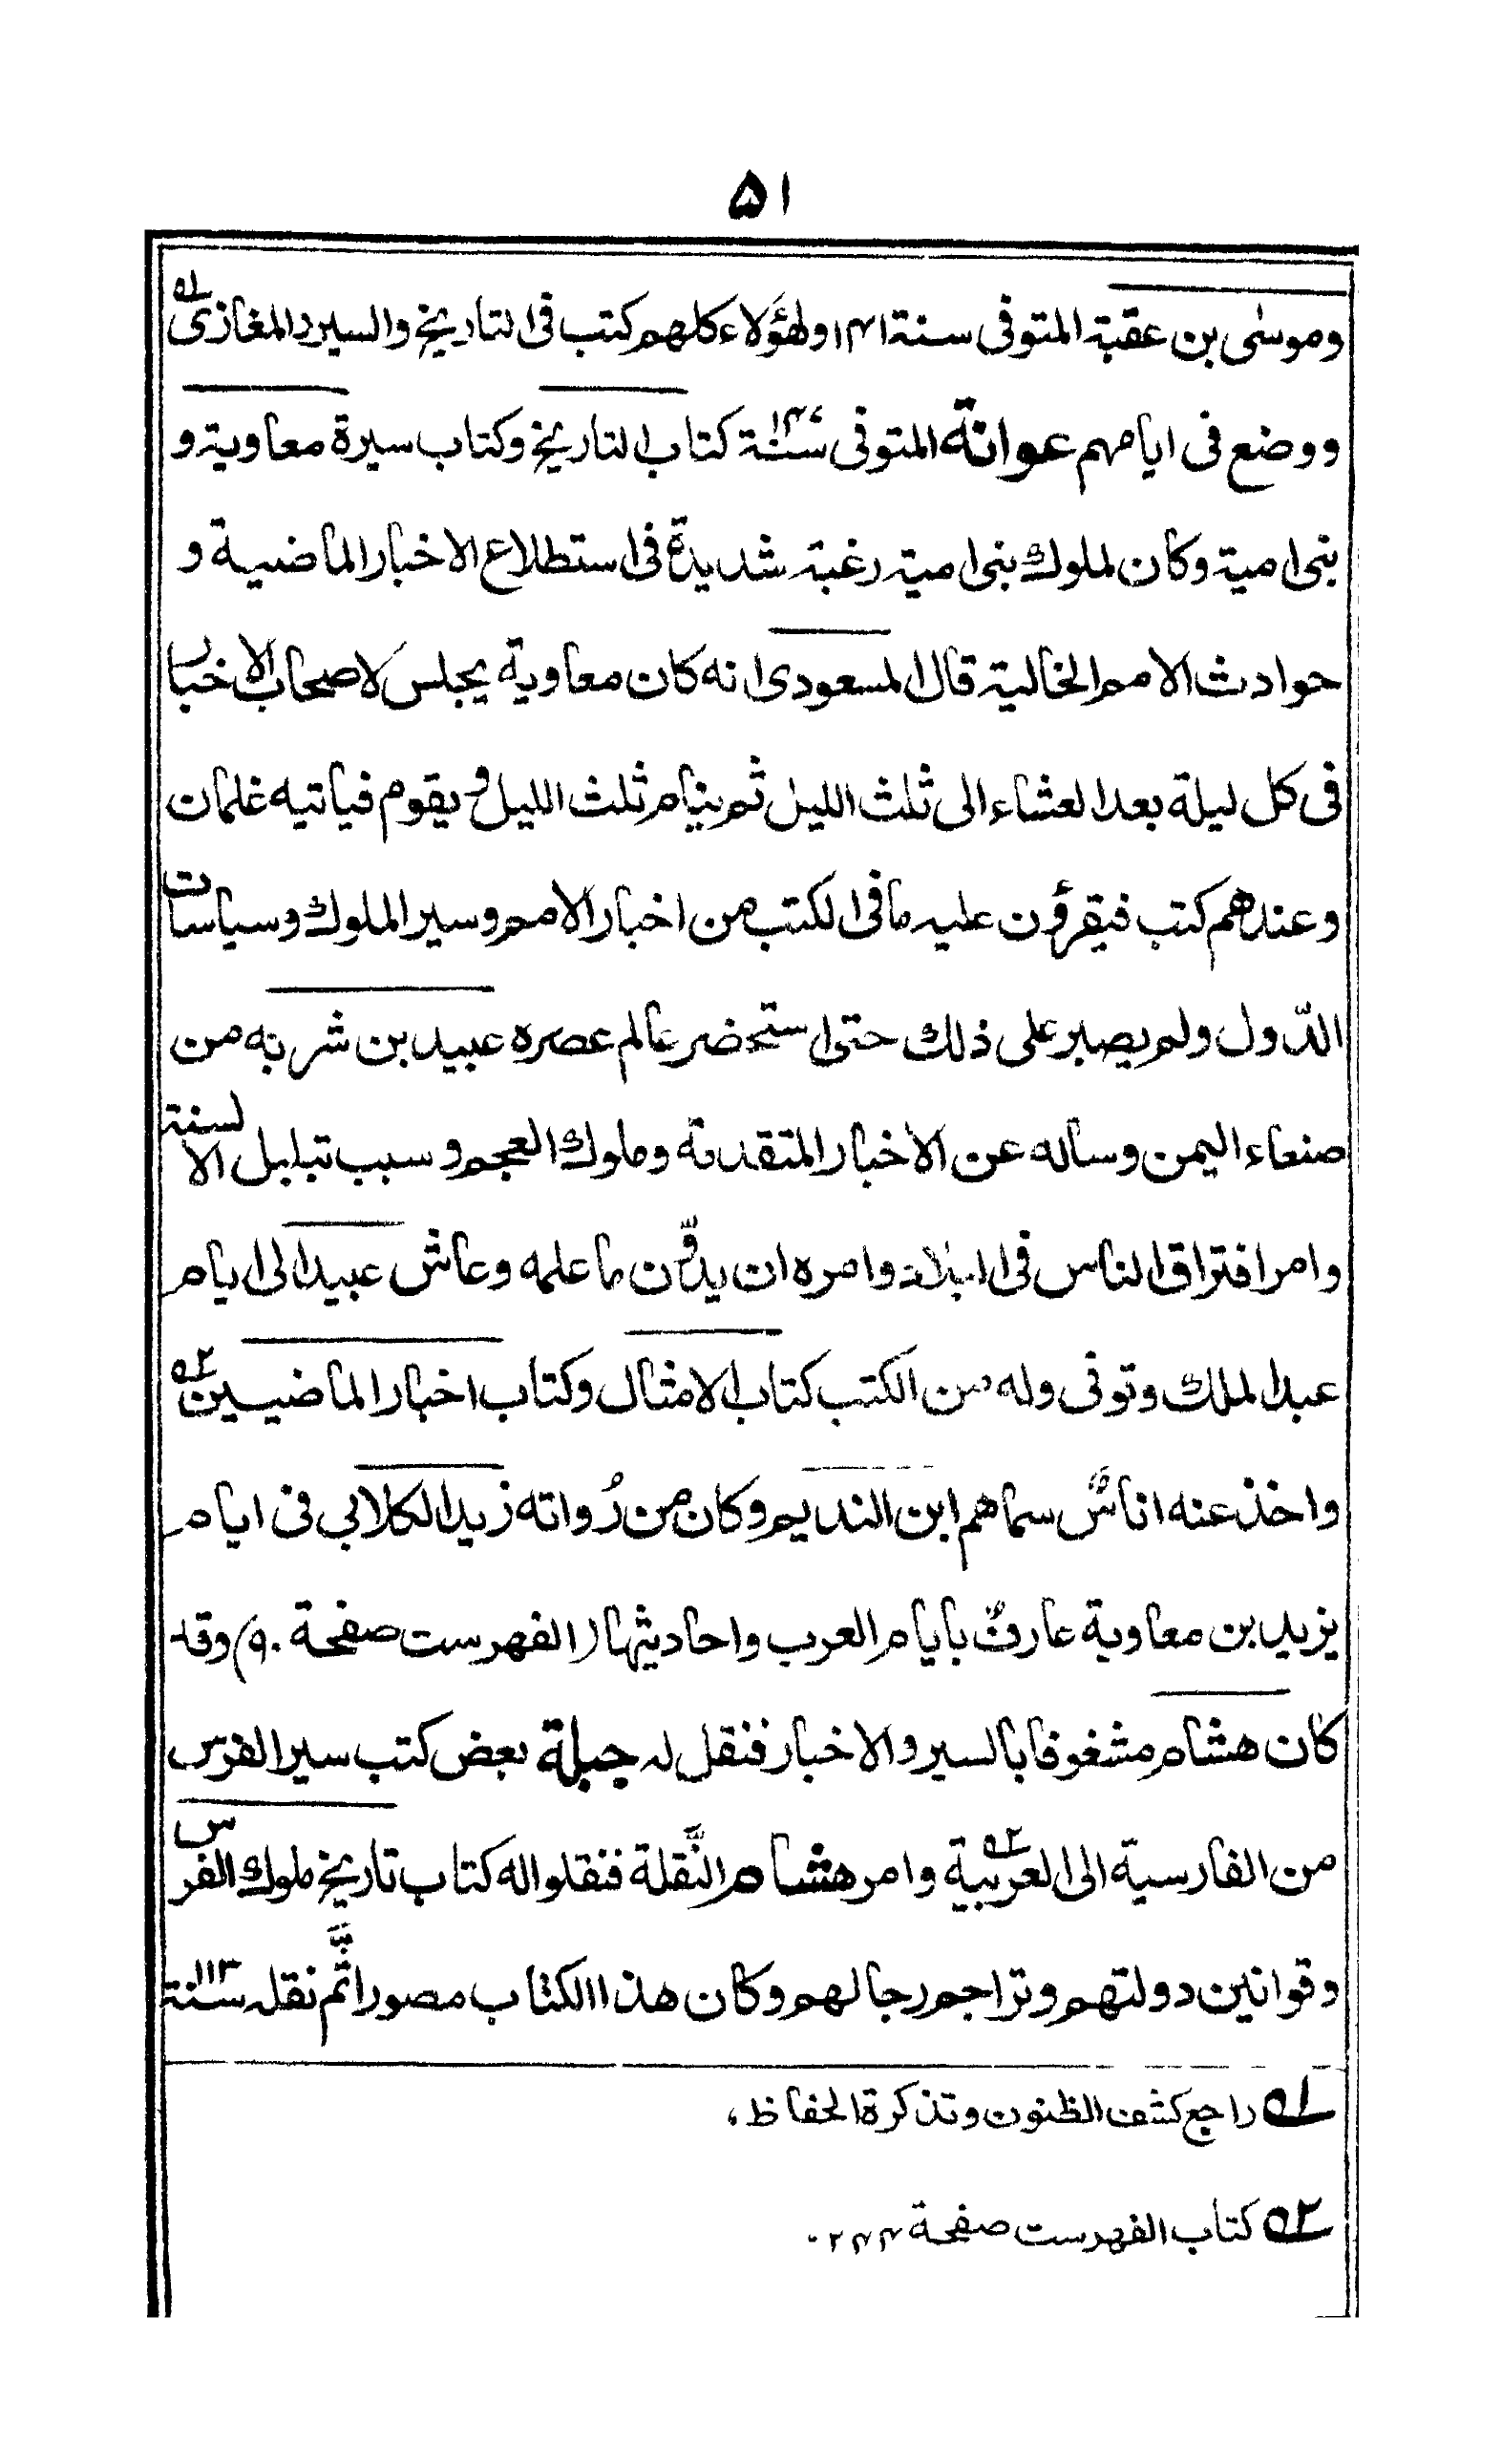 ۵۱
وموسٰى بن عقبة المتوفى سنة ۱۴۱ ولهؤلاء كلهم كتب فى التاريخ والسير والمغازى ۱ه
ووضع فى ايامهم عوانة المتوفى سنة ۱۴۷ كتاب التاريخ وكتاب سيرة معاوية و
بنى امية وكان لملوك بنى امية رغبة شديدة فى استطلاع الاخبار الماضية و
حوادث الامم الخالية قال المسعودى انه كان معاوية يجلس لاصحاب الاخبار
فى كل ليلة بعد العشاء الى ثلث الليل ثم ينام ثلث الليل ويقوم فياتيه غلمان
وعندهم كتب فيقرؤن عليه ما فى الكتب من اخبار الامم وسير الملوك وسياسات
الدّول ولم يصبر على ذلك حتى استحضر عالم عصره عبيد بن شربه من
صنعاء اليمن وساله عن الاخبار المتقدمة وملوك العجم وسبب تبلبل الالسنة
وامر افتراق الناس فى البلاد وامره ان يدوّن ما علمه وعاش عبيد الى ايام
عبد الملك وتوفى وله من الكتب كتاب الامثال وكتاب اخبار الماضيين ۲ه
واخذ عنه اناسٌ سماهم ابن النديم وكان من رُواته زيد الكلابي فى ايام
يزيد بن معاوية عارفٌ بايام العرب واحاديثها (الفهرست صفحة ۹۰) وقد
كان هشام مشغوفا بالسير والاخبار فنقل له جبلة بعض كتب سير الفرس
من الفارسية الى العربية ۲ه وامر هشام النَّقلة فنقلوا له كتاب تاريخ ملوك الفرس
وقوانين دولتهم وتراجم رجالهم وكان هذا الكتاب مصورا تَّم نقله سنة ۱۱۳
۱ه راجع كشف الظنون وتذكرة الحفاظ،
۲ه كتاب الفهرست صفحة ۲۴۴.